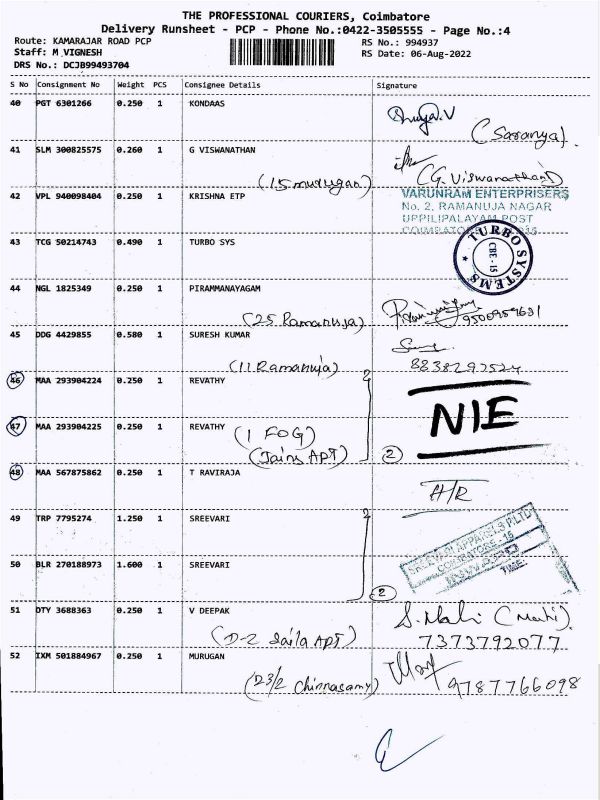 THE PROFESSIONAL COURIERS, Coimbatore
Delivery Runsheet - PCP - Phone No.:0422-3505555 - Page No.:4
Route: KAMARAJAR ROAD PCP RS No.: 994937
Staff: M_VIGNESH RS Date: 06-Aug-2022
DRS No.: DCJB99493704
S No Consignment No Weight PCS Consignee Details Signature
40 PGT 6301266 0.250 1 KONDAAS
(Saranya)
41 SLM 300825575 0.260 1 G VISWANATHAN
(15 murugan) (G. Viswanathan)
42 VPL 940098404 0.250 1 KRISHNA ETP VARUNRAM ENTERPRISERS
No. 2, RAMANUJA NAGAR
UPPILIPALAYAM POST
43 TCG 50214743 0.490 1 TURBO SYS
TURBO SYSTEMS
CBE - 15
44 NGL 1825349 0.250 1 PIRAMMANAYAGAM
(25 Ramanuja)
45 DDG 4429855 0.580 1 SURESH KUMAR
(11 Ramanuja)
46 MAA 293904224 0.250 1 REVATHY
NIE
47 MAA 293904225 0.250 1 REVATHY
(1 FOG)
(Jains APT) 2
48 MAA 567875862 0.250 1 T RAVIRAJA
A/R
49 TRP 7795274 1.250 1 SREEVARI
SREEVARI APPARELS P.LTD
COIMBATORE - 15
INWARD
TIME:
50 BLR 270188973 1.600 1 SREEVARI
2
51 DTY 3688363 0.250 1 V DEEPAK
S. Mahi (Mahi)
(D-2 Saila APT) 7373792077
52 IXM 501884967 0.250 1 MURUGAN
(D3/2 Chinnasamy) 9787766098